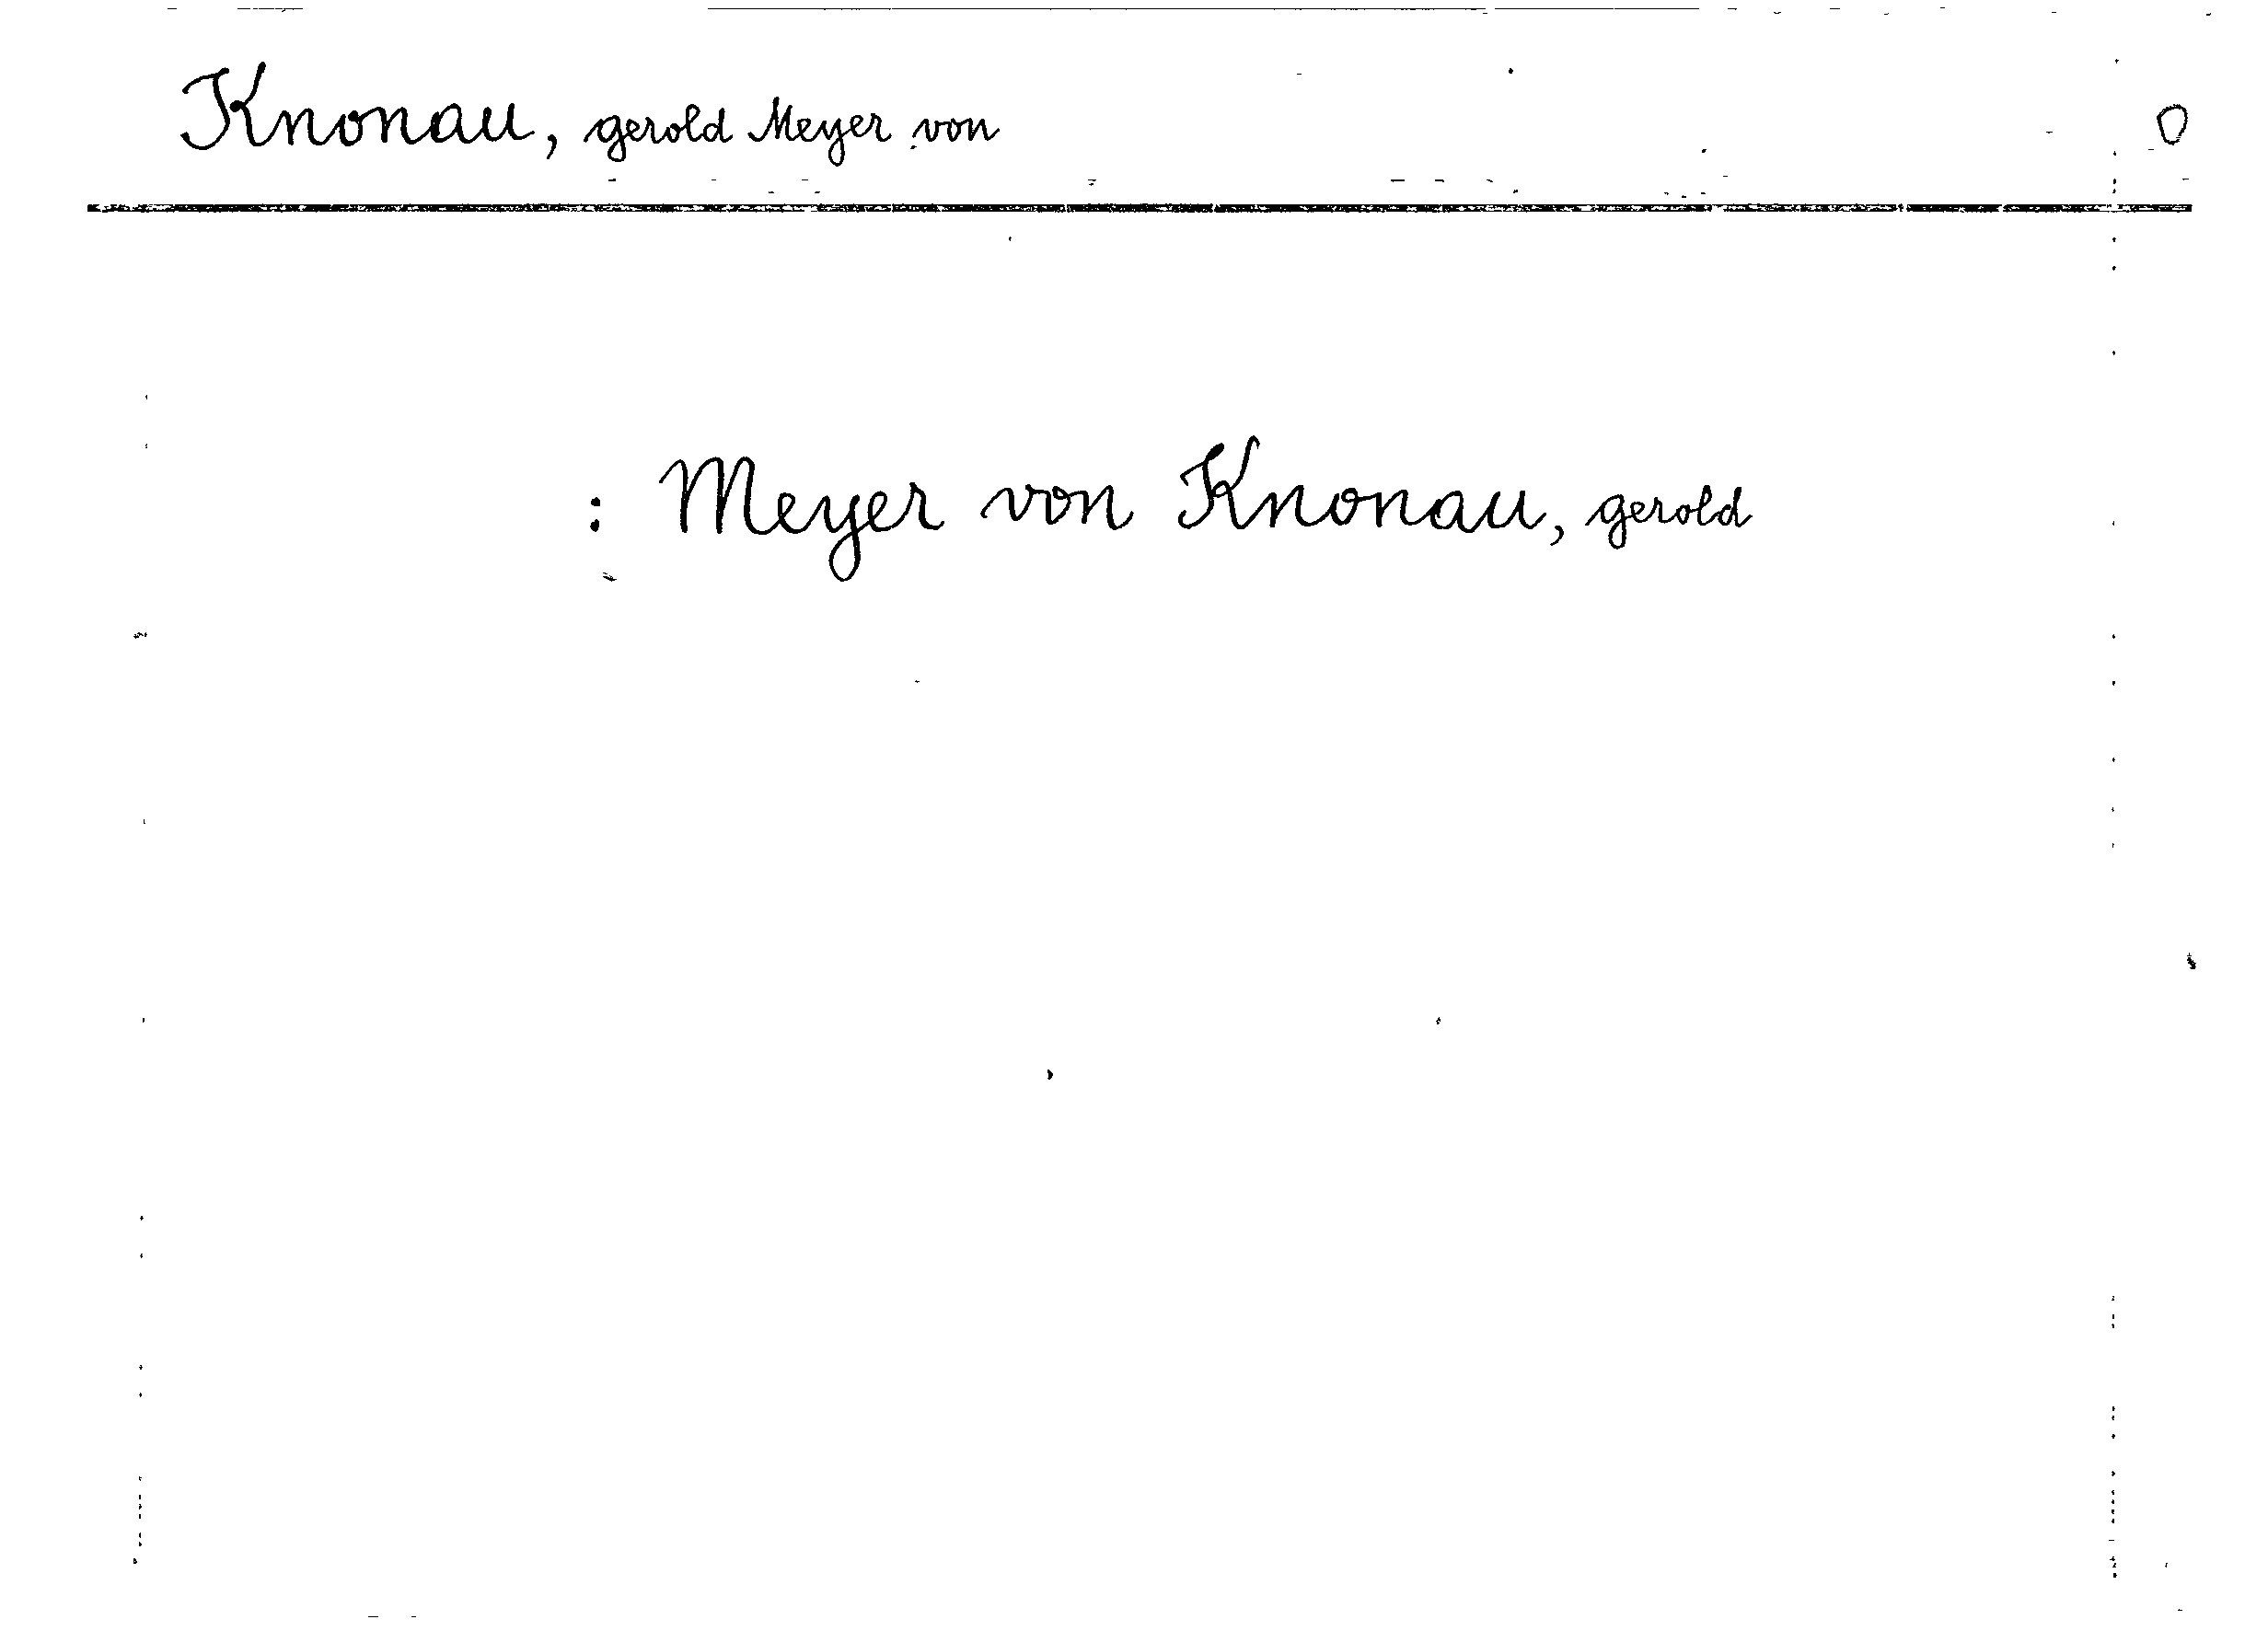 Knonau, Gerold Meyer von
0
: Meyer von Knonau, Gerold